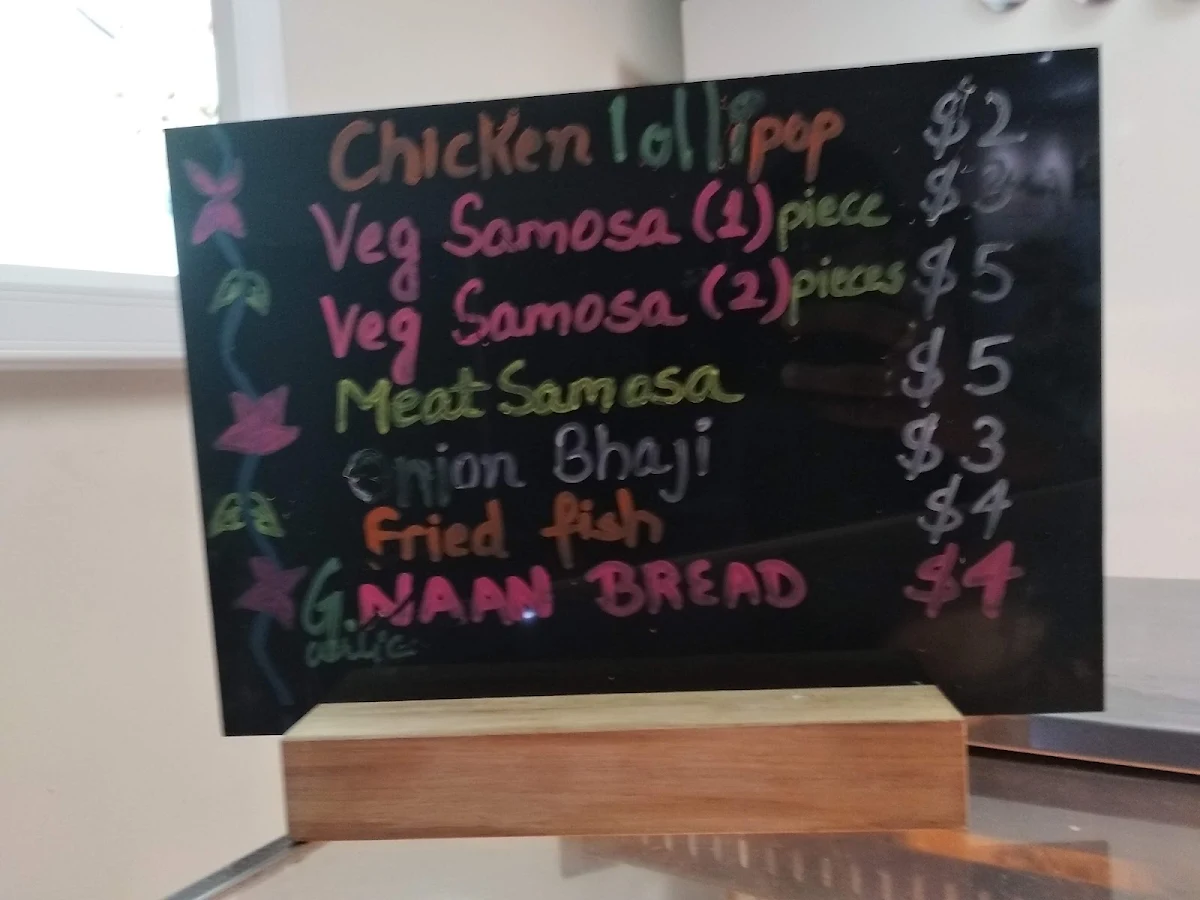 Chicken lollipop $2
Veg Samosa (1) piece $3
Veg Samosa (2) pieces $5
Meat Samosa $5
Onion Bhaji $3
Fried fish $4
G. NAAN BREAD $4
arlic